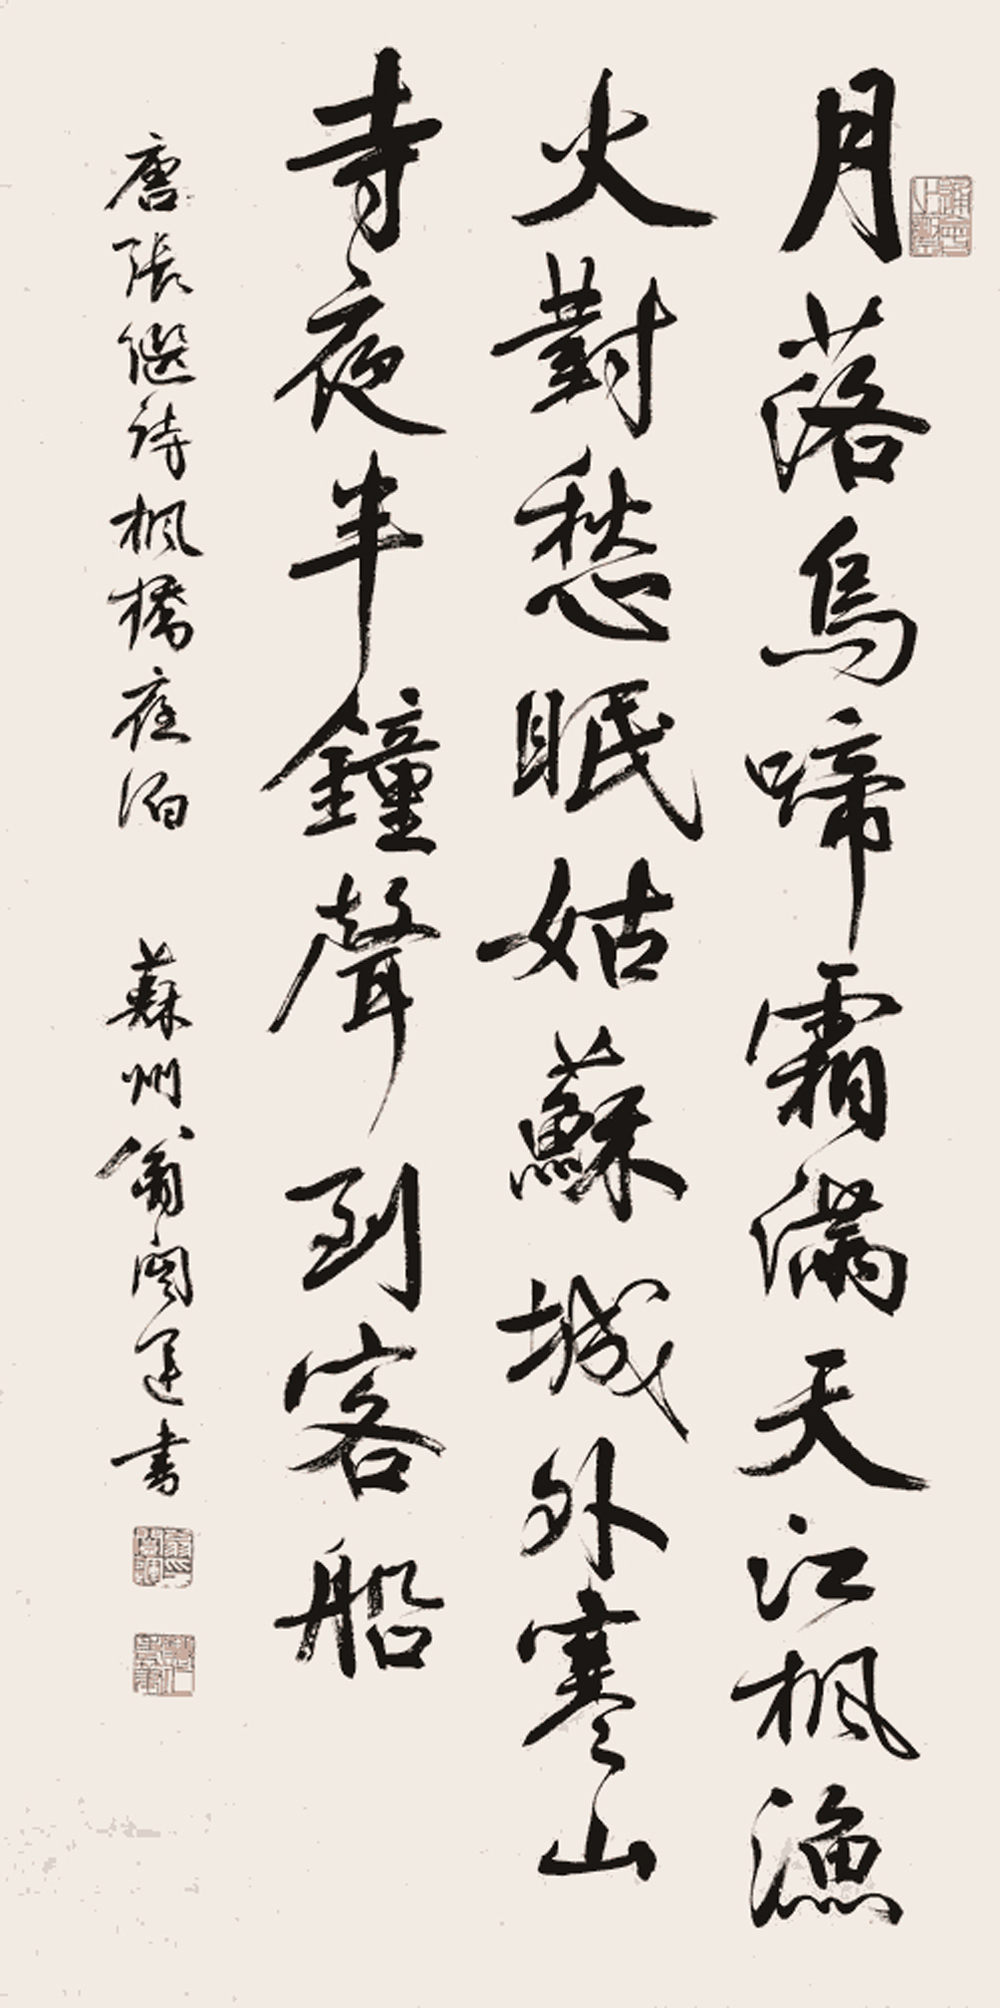 月落烏啼霜滿天江楓漁
火對愁眠姑蘇城外寒山
寺夜半鐘聲到客船
唐張繼詩楓橋夜泊 蘇州翁闓運書